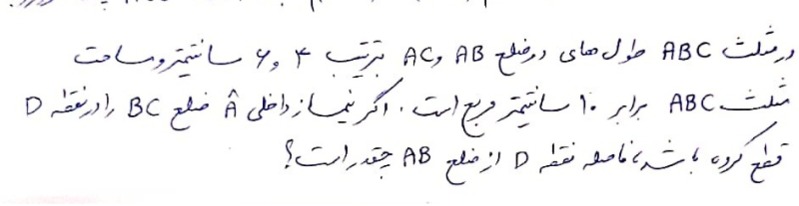 در مثلث ABC طول های دو ضلع AB و AC بترتیب ۴ و ۶ سانتیمتر و مساحت
مثلث ABC برابر ۱۰ سانتیمتر مربع است. اگر نیمساز داخلی Â ضلع BC را در نقطه D
قطع کرده باشد، فاصله نقطه D از ضلع AB چقدر است؟